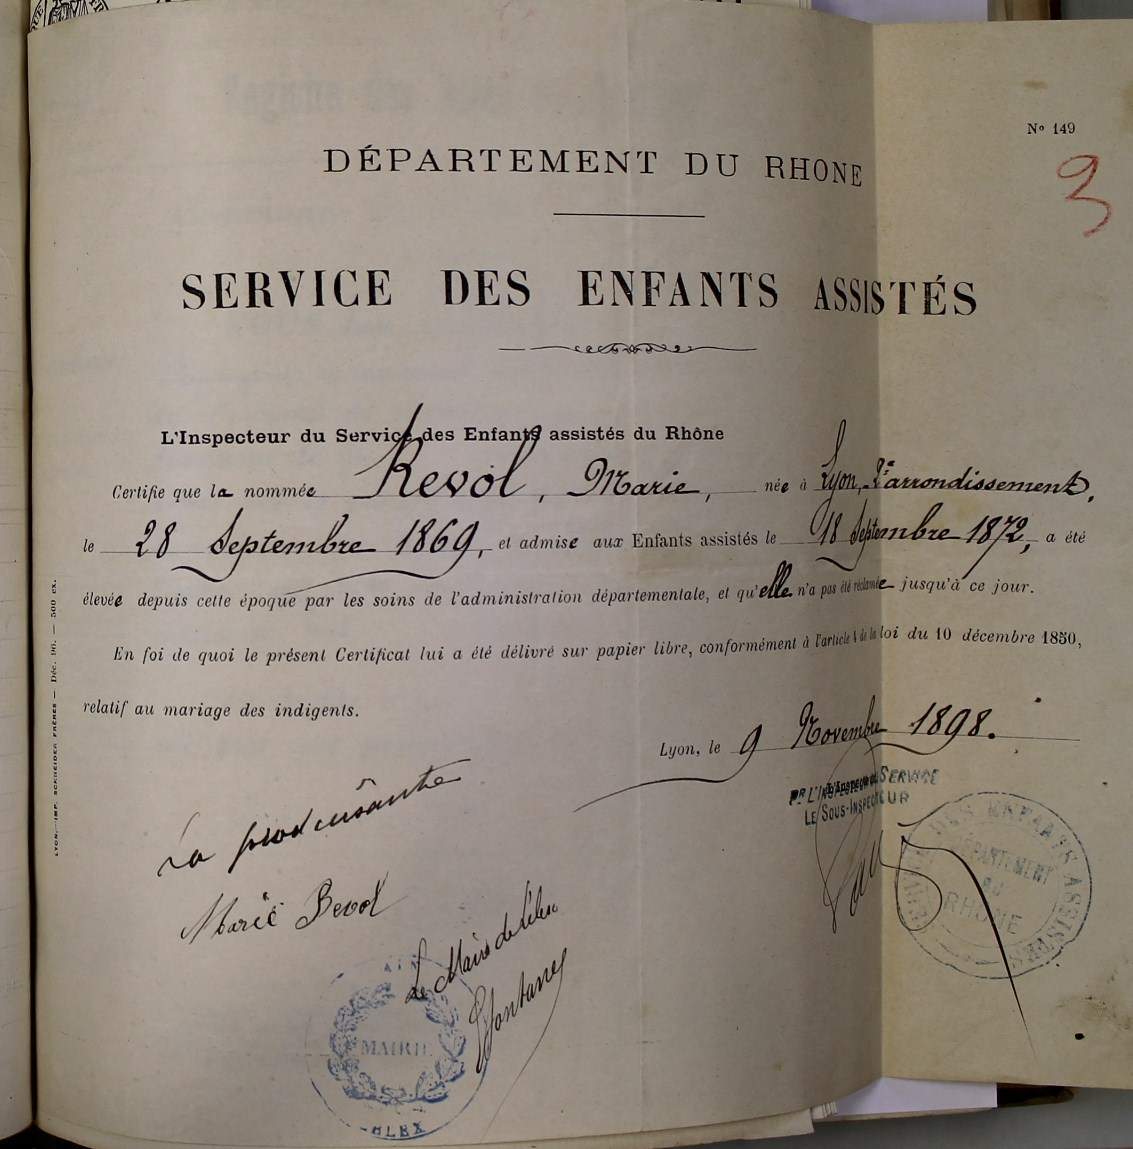 Nº 149
3
DÉPARTEMENT DU RHONE
SERVICE DES ENFANTS ASSISTÉS
L'Inspecteur du Service des Enfants assistés du Rhône
Certifie que la nommée Revol, Marie, née à Lyon, 2e arrondissement,
le 28 Septembre 1869, et admise aux Enfants assistés le 18 Septembre 1872, a été
élevée depuis cette époque par les soins de l'administration départementale, et qu'elle n'a pas été réclamée jusqu'à ce jour.
En foi de quoi le présent Certificat lui a été délivré sur papier libre, conformément à l'article 4 de la loi du 10 décembre 1850,
relatif au mariage des indigents.
Lyon, le 9 Novembre 1898.
PR L'INSPECTEUR DU SERVICE
LE SOUS-INSPECTEUR
SERVICE DES ENFANTS ASSISTÉS
DÉPARTEMENT
DU
RHONE
La produisante
Marie Revol
Le Maire de
Fontanel
AIN
MAIRIE
LYON.—IMP. SCHNEIDER FRÈRES — Déc. 96. — 500 ex.